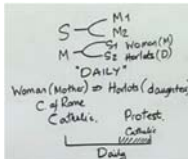 S M1
M2
M S1 Women (M)
S2 Harlots (D)
"DAILY"
Woman (Mother) ⇒ Harlots (daughter)
C of Rome Protest.
Catholic. Catholic
Daily